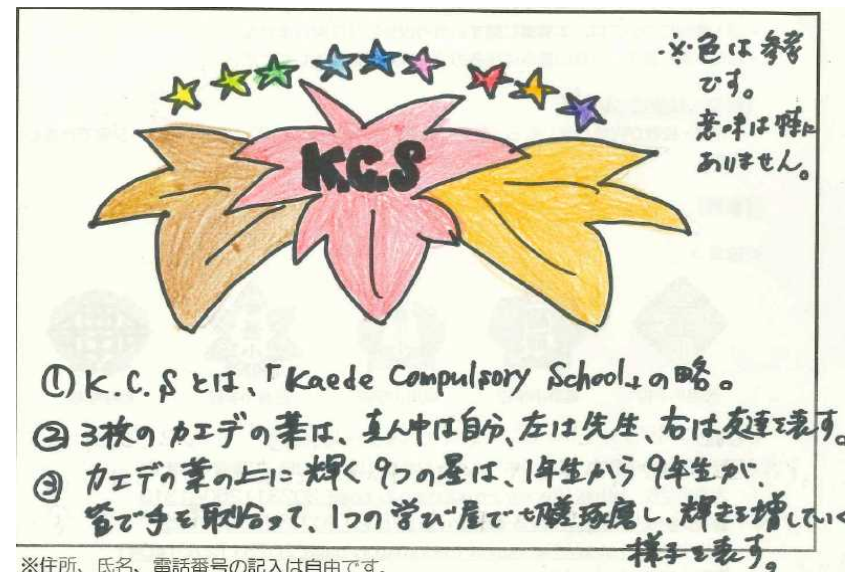 ※色は参考
です。
意味は特に
ありません。
K.C.S
① K.C.Sとは、「Kaede Compulsory School」の略。
② 3枚のカエデの葉は、真ん中は自分、左は先生、右は友達を表す。
③ カエデの葉の上に輝く9つの星は、1年生から9年生が、
皆で手を取合って、1つの学び屋で切磋琢磨し、輝きを増していく
様子を表す。
※住所、氏名、電話番号の記入は自由です。